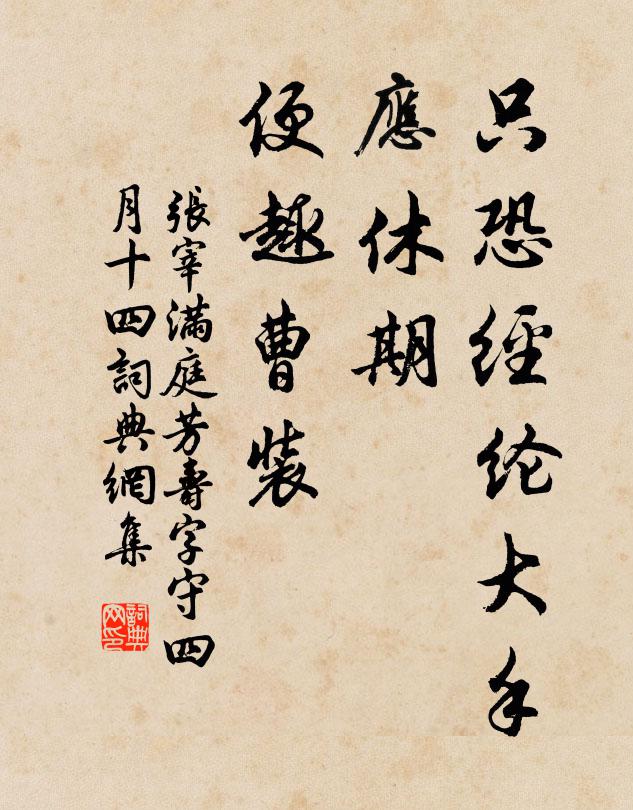 只恐經纶大手
應休期
便趣曹裝
張宰滿庭芳壽字守四
月十四詞典網集
詞典
网印